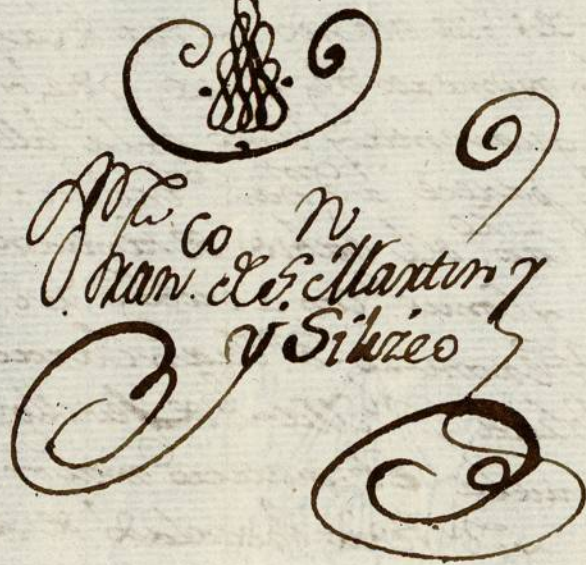 Fran.co de S.n Martin y
y Silizeo